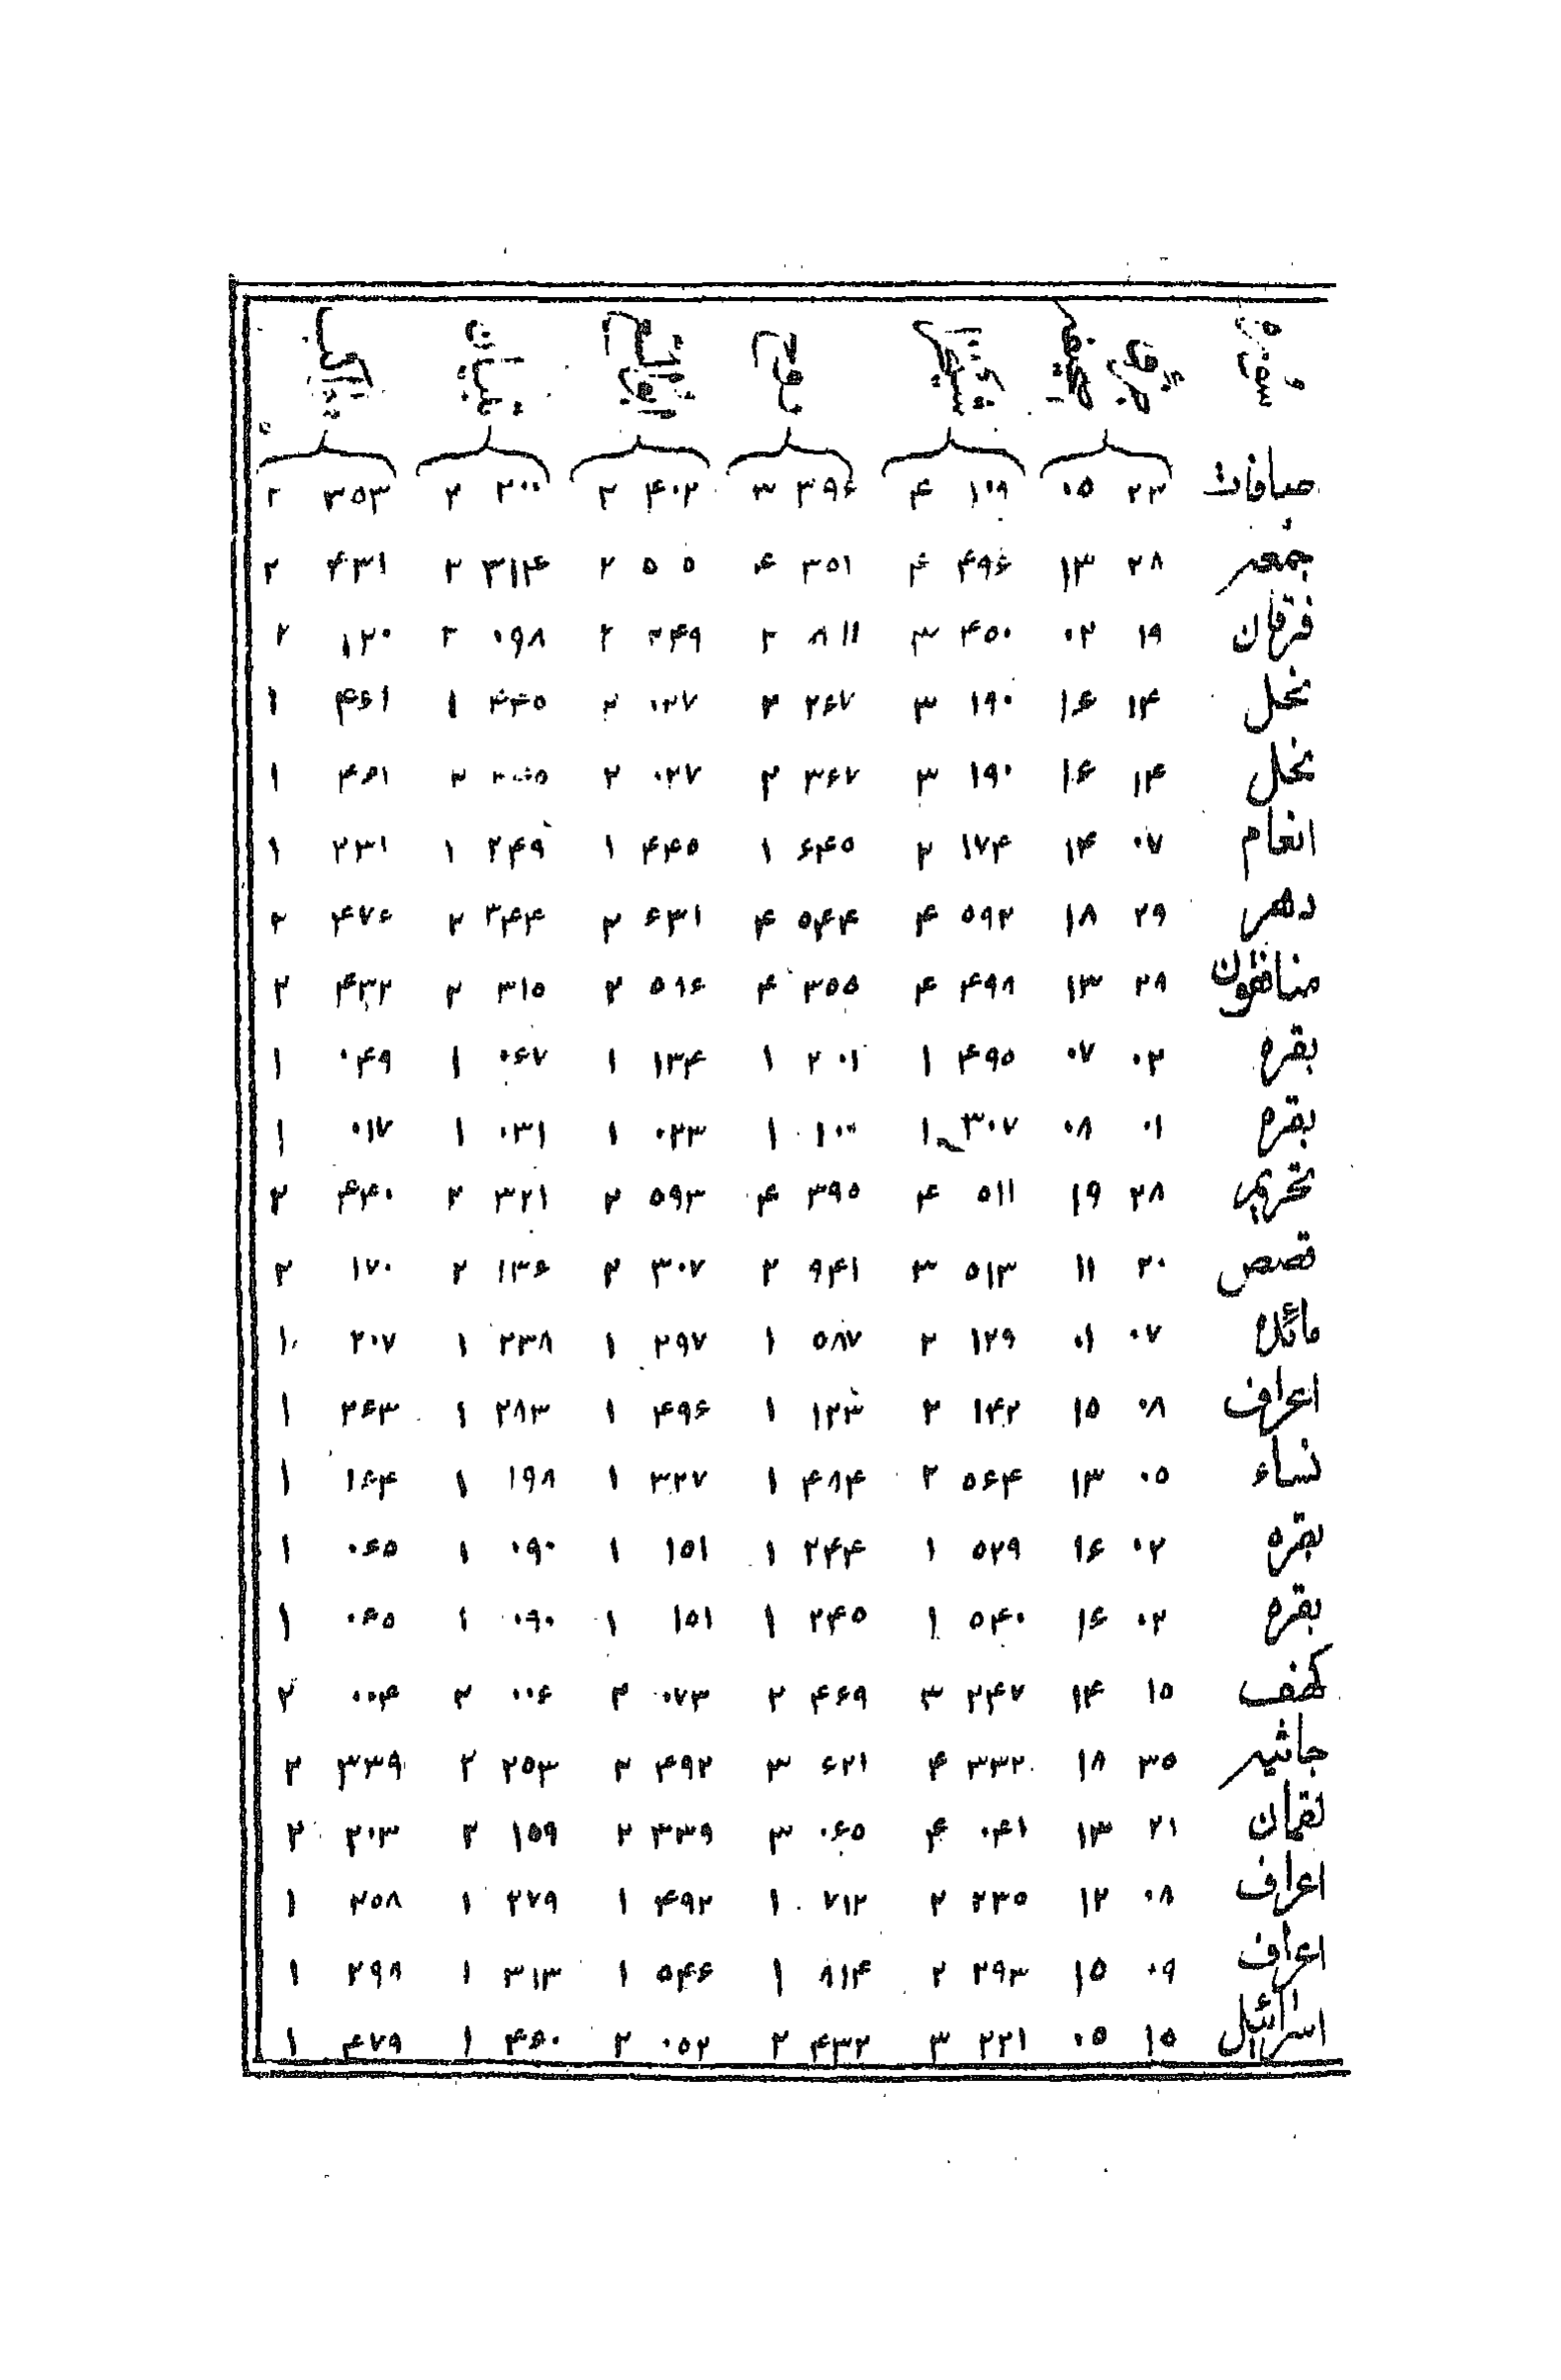 صافات ۲۳ ۰۵ ۱۰۹ ۴ ۳۹۶ ۳ ۴۰۲ ۲ ۲۰۰ ۲ ۳۵۳ ۲
جمعه ۲۸ ۱۳ ۴۹۶ ۴ ۳۵۱ ۴ ۵ ۵ ۲ ۳۱۴ ۲ ۴۳۱ ۲
فرقان ۱۹ ۰۲ ۴۵۰ ۳ ۸۱۱ ۲ ۲۴۹ ۲ ۰۹۸ ۲ ۱۲۰ ۲
نحل ۱۴ ۱۶ ۱۹۰ ۳ ۲۶۷ ۲ ۰۲۷ ۲ ۴۴۵ ۱ ۴۶۱ ۱
نحل ۱۴ ۱۶ ۱۹۰ ۳ ۳۶۷ ۲ ۰۲۷ ۲ ۲ ۴۶۱ ۱
انعام ۰۷ ۱۴ ۱۷۴ ۲ ۶۴۵ ۱ ۴۴۵ ۱ ۲۴۹ ۱ ۲۳۱ ۱
دهر ۲۹ ۱۸ ۵۹۲ ۴ ۵۴۴ ۴ ۶۳۱ ۲ ۳۴۴ ۲ ۴۷۶ ۲
منافقون ۲۸ ۱۳ ۴۹۸ ۴ ۳۵۵ ۴ ۵۹۶ ۲ ۳۱۵ ۲ ۴۳۲ ۲
بقره ۰۲ ۰۷ ۴۹۵ ۱ ۲۰۱ ۱ ۱۳۴ ۱ ۰۶۷ ۱ ۰۴۹ ۱
بقره ۰۱ ۰۸ ۳۰۷ ۱ ۱۰۰ ۱ ۰۲۳ ۱ ۰۳۱ ۱ ۰۱۷ ۱
تحریم ۲۸ ۱۹ ۵۱۱ ۴ ۳۹۵ ۴ ۵۹۳ ۲ ۳۲۱ ۲ ۴۴۰ ۲
قصص ۲۰ ۱۱ ۵۱۳ ۳ ۹۴۱ ۲ ۳۰۷ ۲ ۱۳۶ ۲ ۱۷۰ ۲
مائده ۰۷ ۰۱ ۱۲۹ ۲ ۵۸۷ ۱ ۲۹۷ ۱ ۲۳۸ ۱ ۲۰۷ ۱
اعراف ۰۸ ۱۵ ۱۴۲ ۲ ۱۲۳ ۱ ۴۹۶ ۱ ۲۸۳ ۱ ۲۶۳ ۱
نساء ۰۵ ۱۳ ۵۶۴ ۲ ۴۸۴ ۱ ۳۲۷ ۱ ۱۹۸ ۱ ۱۶۴ ۱
بقره ۰۲ ۱۶ ۵۲۹ ۱ ۲۴۴ ۱ ۱۵۱ ۱ ۰۹۰ ۱ ۰۶۵ ۱
بقره ۰۲ ۱۶ ۵۴۰ ۱ ۲۴۵ ۱ ۱۵۱ ۱ ۰۹۰ ۱ ۰۶۵ ۱
کهف ۱۵ ۱۴ ۲۴۷ ۳ ۴۶۹ ۲ ۰۷۳ ۲ ۰۰۶ ۲ ۰۰۴ ۲
جاثیه ۳۵ ۱۸ ۳۳۲ ۴ ۶۲۱ ۳ ۴۹۲ ۲ ۲۵۳ ۲ ۳۳۹ ۲
لقمان ۲۱ ۱۳ ۰۴۱ ۴ ۰۶۵ ۳ ۳۳۹ ۲ ۱۵۹ ۲ ۲۰۳ ۲
اعراف ۰۸ ۱۲ ۲۳۵ ۲ ۷۱۲ ۱ ۴۹۲ ۱ ۲۷۹ ۱ ۲۵۸ ۱
اعراف ۰۹ ۱۵ ۲۹۳ ۲ ۸۱۴ ۱ ۵۴۶ ۱ ۳۱۳ ۱ ۲۹۸ ۱
اسرائیل ۱۵ ۰۵ ۲۲۱ ۳ ۴۳۲ ۲ ۰۵۲ ۲ ۴۶۰ ۱ ۴۷۹ ۱